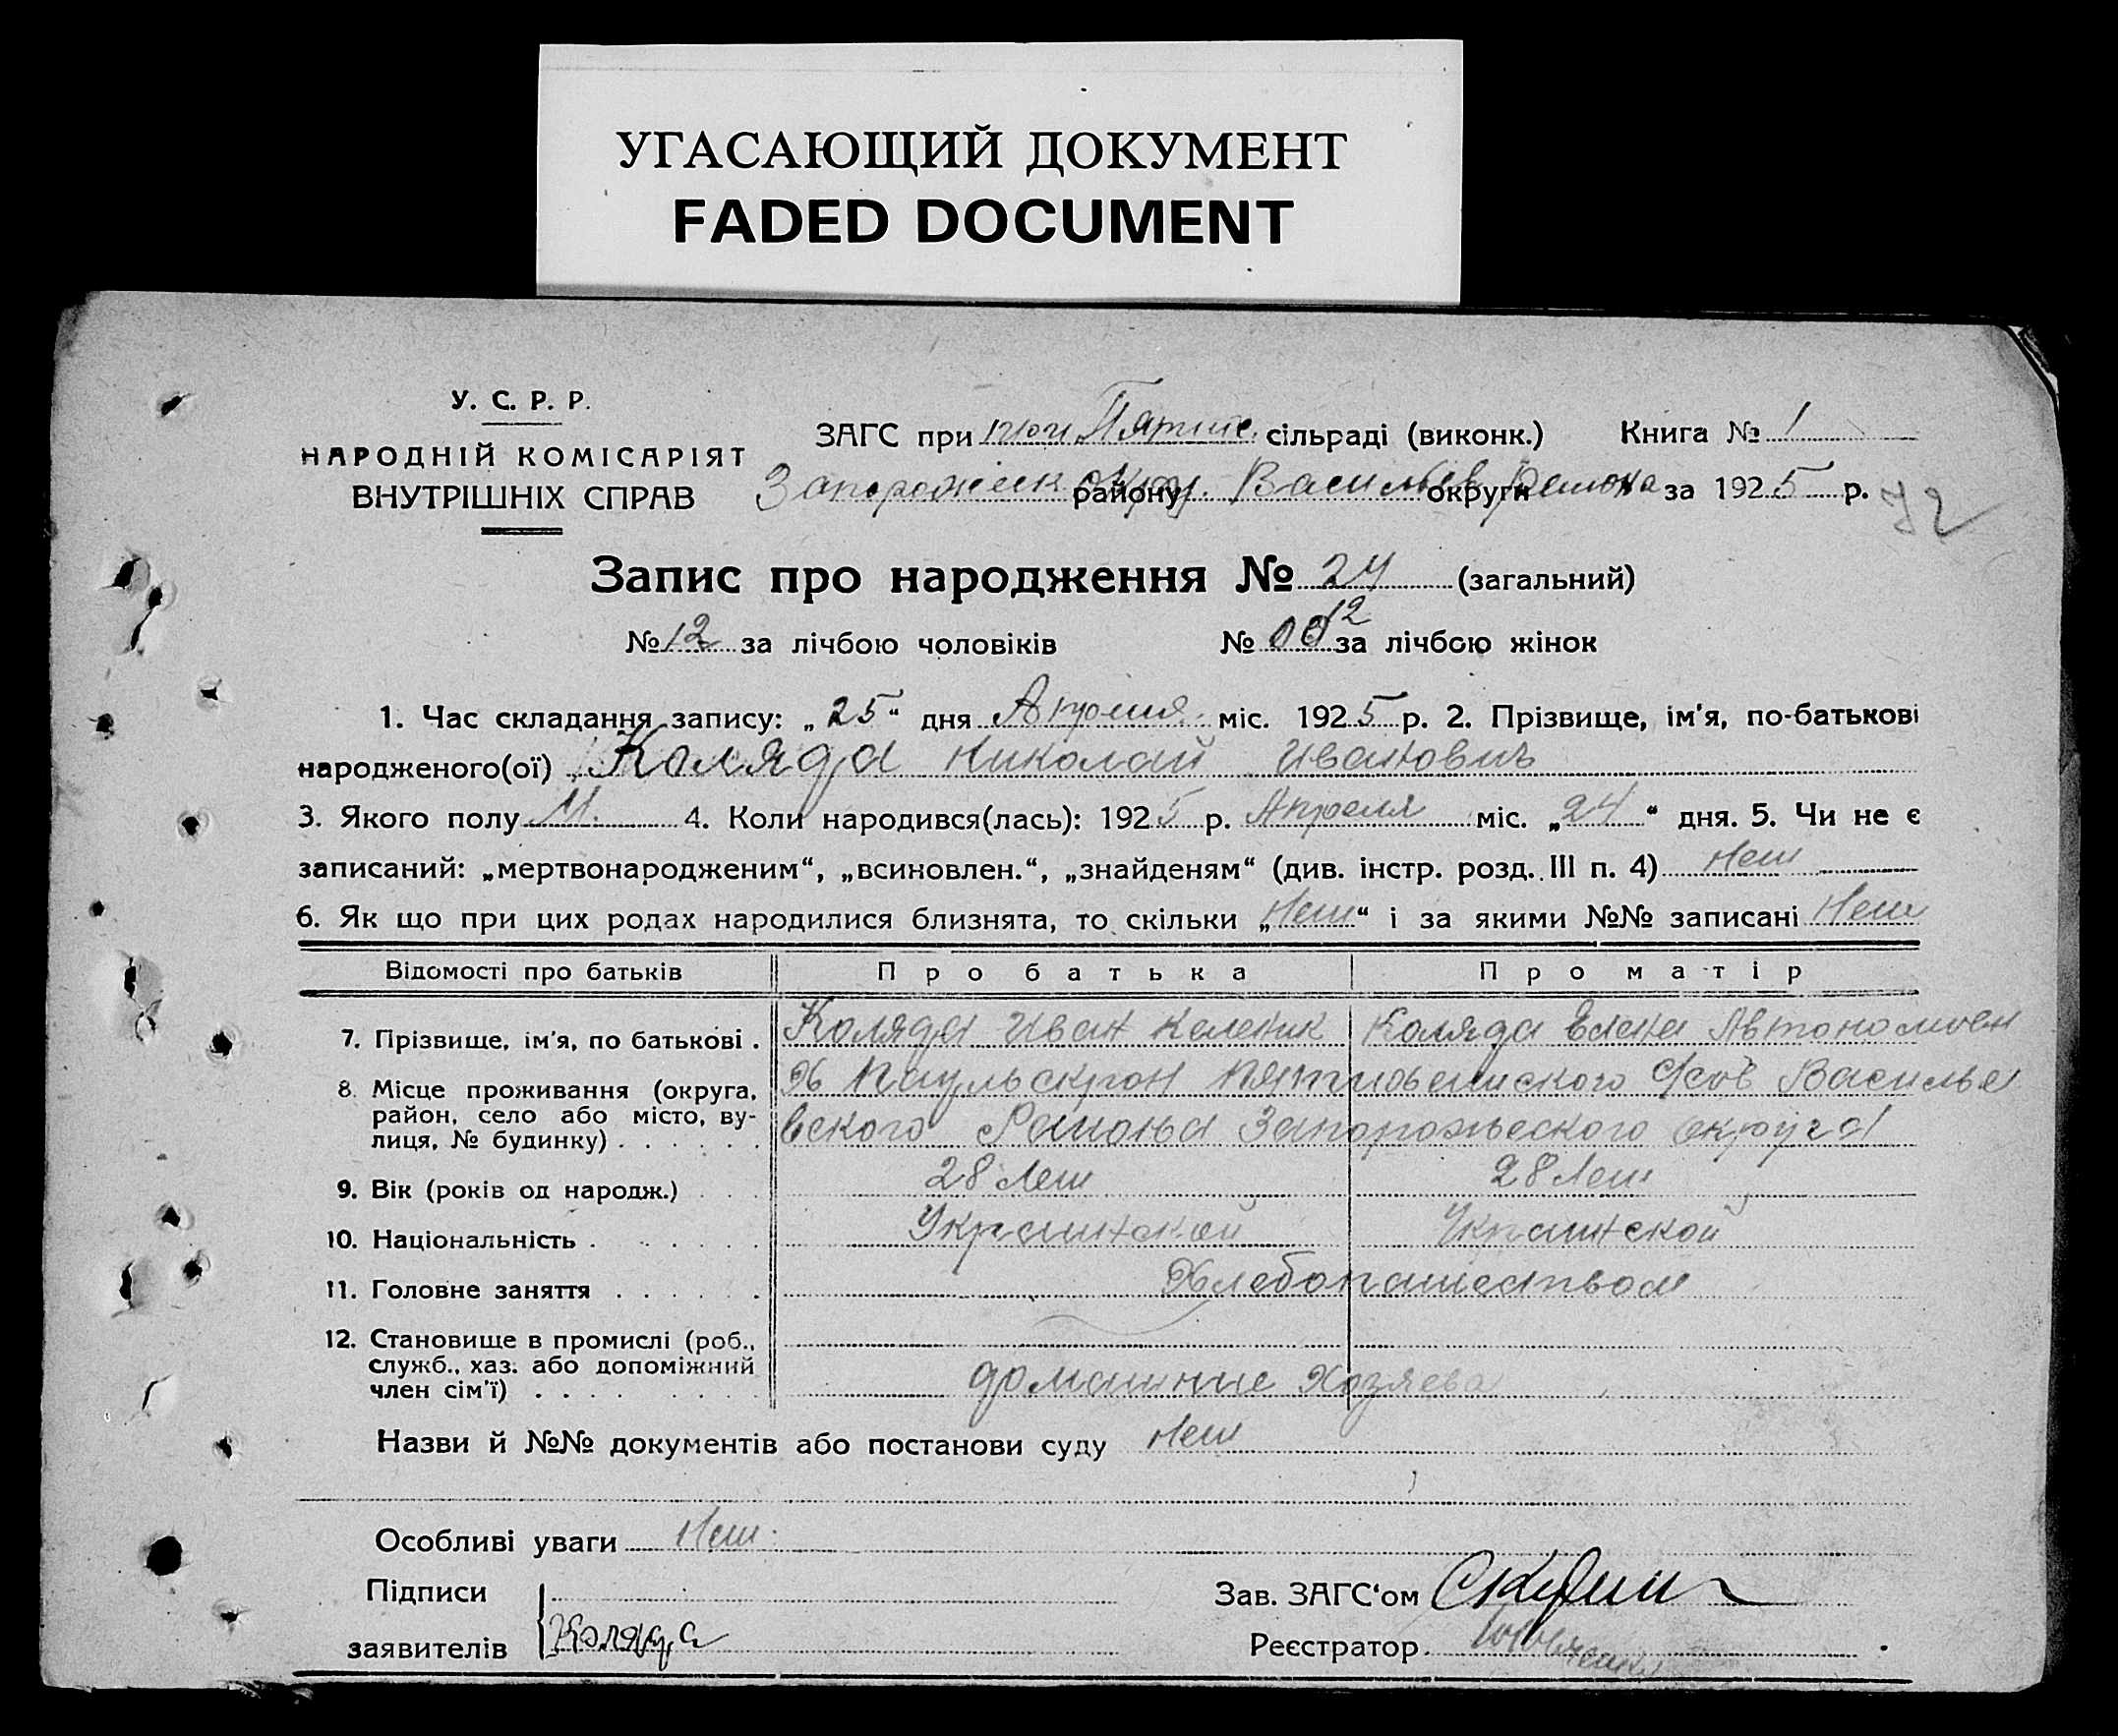 УГАСАЮЩИЙ ДОКУМЕНТ
FADED DOCUMENT
У. С. Р. Р.
НАРОДНІЙ КОМІСАРІЯТ
ВНУТРІШНІХ СПРАВ
ЗАГС при сільраді (виконк.) Книга № 1
Запорожск округ. району Васильев округи Района за 1925 р.
72
Запис про народження № 24 (загальний)
№ 12 за лічбою чоловіків № 12 за лічбою жінок
1. Час складання запису: „25“ дня Апреля міс. 1925 р. 2. Прізвище, ім'я, по-батькові
народженого(ої) Коляда Николай Иванович
3. Якого полу М. 4. Коли народився(лась): 1925 р. Апреля міс. „24“ дня. 5. Чи не є
записаний: „мертвонародженим“, „всиновлен.“, „знайденям“ (див. інстр. розд. III п. 4) Нет
6. Як що при цих родах народилися близнята, то скільки „Нет“ і за якими №№ записані Нет
Відомості про батьків Про батька Про матір
7. Прізвище, ім'я, по батькові . Коляда Иван Каленик Коляда Елена Автономовн
8. Місце проживання (округа, район, село або місто, вулиця, № будинку) . . . . . .
Х Паульскрон Василье
вского Района Запорожеского округа
9. Вік (років од народж.) . . . 28 Лет 28 Лет
10. Національність . . . . . . Украинской Украинской
11. Головне заняття . . . . . . Хлебопашеством
12. Становище в промислі (роб., служб., хаз. або допоміжний член сім'ї) . . . . .
домашние Хозяева
Назви й №№ документів або постанови суду Нет
Особливі уваги Нет.
Підписи
заявителів Коляда
Зав. ЗАГС'ом
Реєстратор